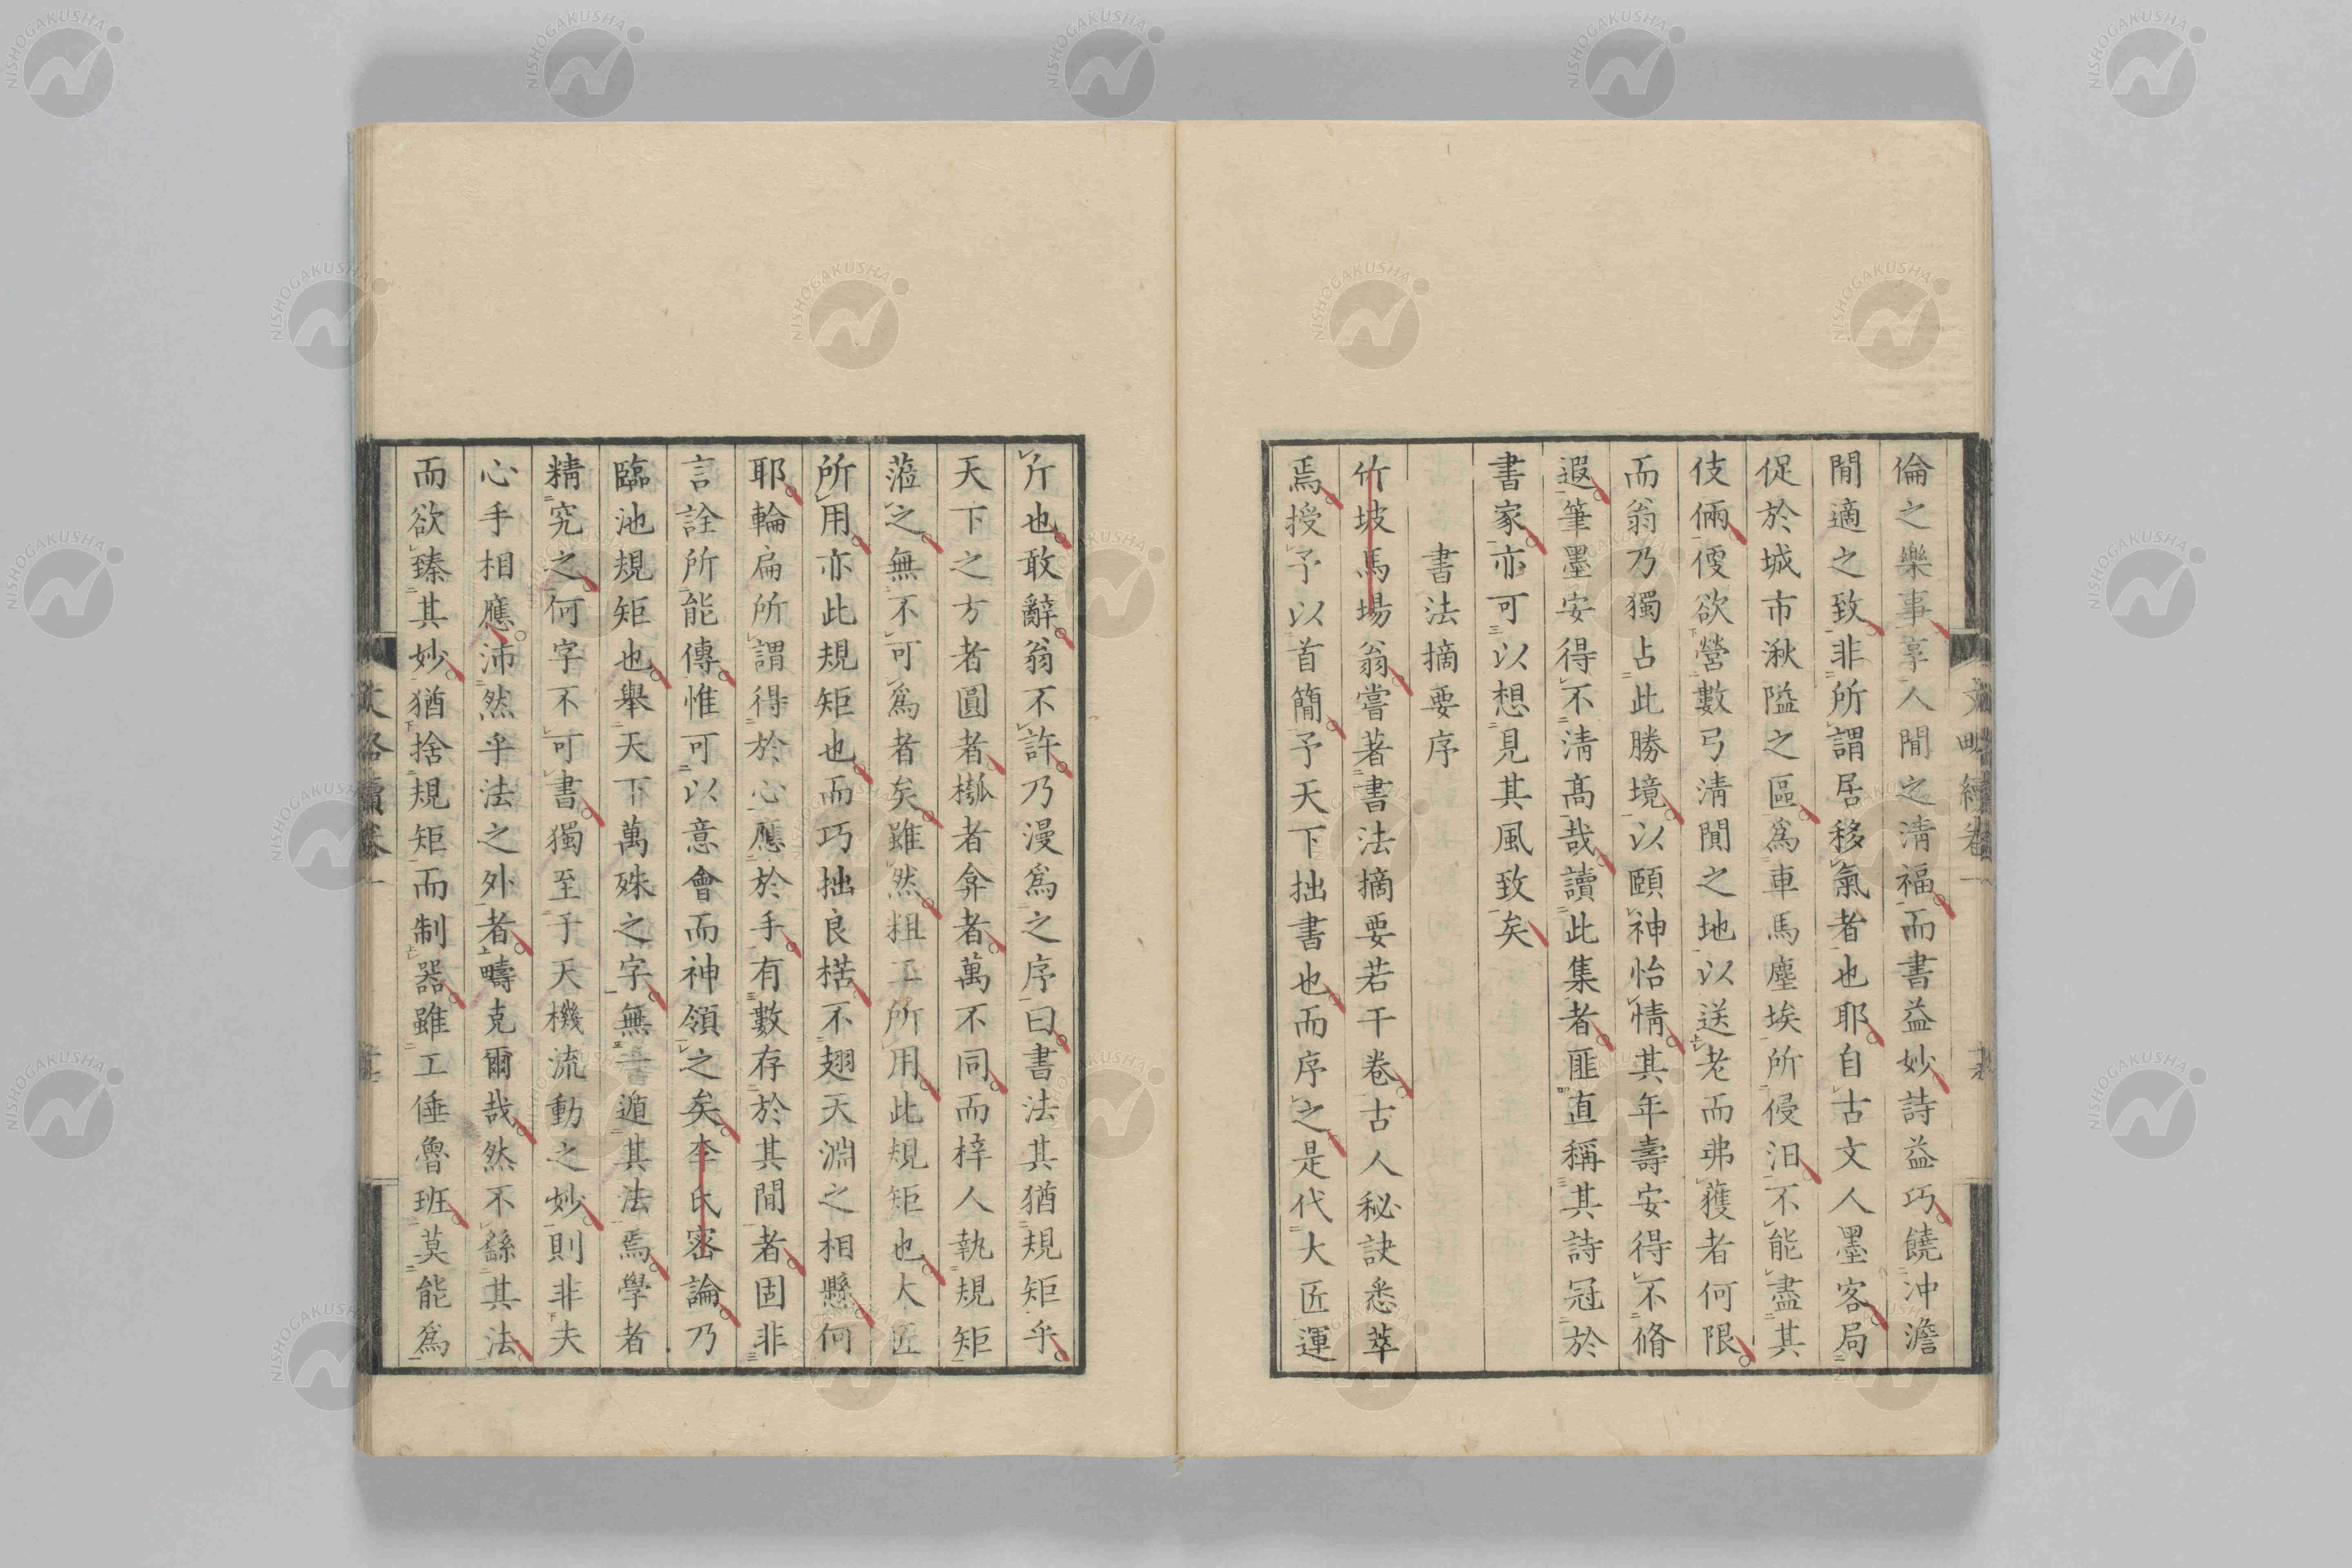 倫之樂事享人閒之淸福而書益妙詩益巧饒冲澹
閒適之致非所謂居移氣者也耶自古文人墨客局
促於城市湫隘之區爲車馬塵埃所侵汨不能盡其
伎倆便欲營數弓淸閒之地以送老而弗獲者何限
而翁乃獨占此勝境以頤神怡情其年壽安得不脩
遐筆墨安得不淸高哉讀此集者匪直稱其詩冠於
書家亦可以想見其風致矣
書法摘要序
竹坡馬場翁嘗著書法摘要若干卷古人秘訣悉萃
焉授予以首簡予天下拙書也而序之是代大匠運
斤也敢辭翁不許乃漫爲之序曰書法其猶規矩乎
天下之方者圓者橛者弇者萬不同而梓人執規矩
蒞之無不可爲者矣雖然粗工所用此規矩也大匠
所用亦此規矩也而巧拙良楛不翅天淵之相懸何
耶輪扁所謂得於心應於手有數存於其閒者固非
言詮所能傳惟可以意會而神領之矣李氏密論乃
臨池規矩也舉天下萬殊之字無一遁其法焉學者
精究之何字不可書獨至于天機流動之妙則非夫
心手相應沛然乎法之外者疇克爾哉然不繇其法
而欲臻其妙猶捨規矩而制器雖工倕魯班莫能爲
文略續卷一
NISHOGAKUSHA